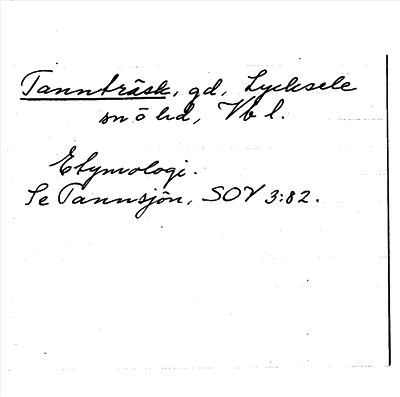 Tannträsk, gd, Lycksele
sn o hd, Vb l.
Etymologi.
Se Tannsjön, SOV 3:82.